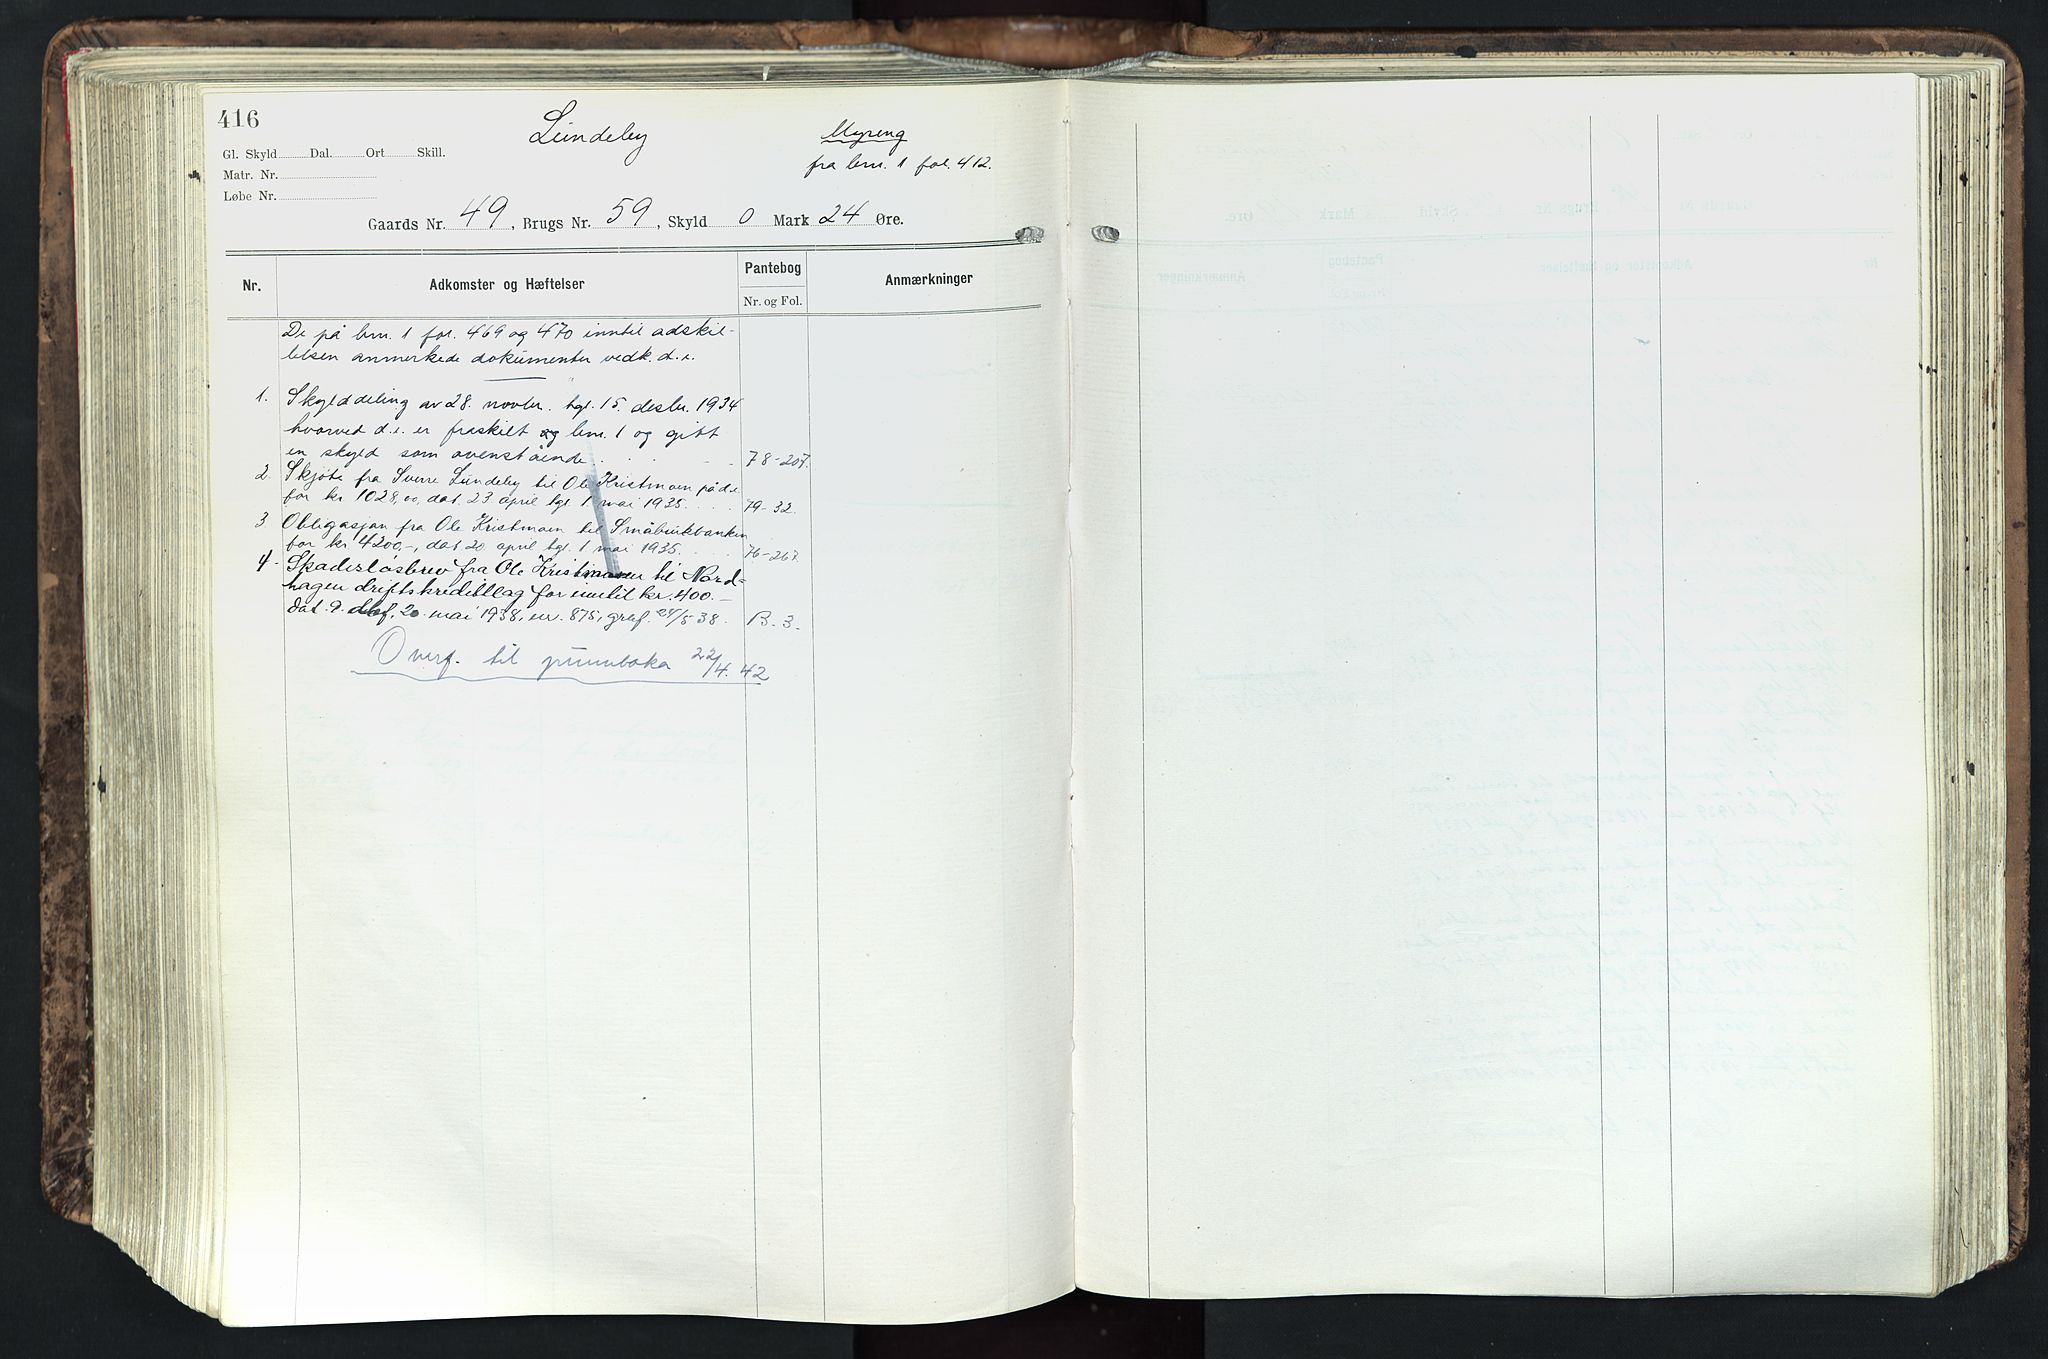 416
Lundeby
Myreng
fra brn. 1 fol. 412.
Gl. Skyld Dal. Ort Skill.
Matr. Nr.
Løbe Nr.
Gaards Nr. 49, Brugs Nr. 59, Skyld 0 Mark 24 Øre.
Nr. Adkomster og Hæftelser Pantebog Anmærkninger
Nr. og Fol.
De på brn. 1 for. 469 og 470 inntil adskil-
lelsen anmerkede dokumenter vedk. d.e.
1. Skylddeling av 28. novbr. tgl. 15. desbr. 1934
hvorved d.e. er fraskilt brn. 1 og gitt
en skyld som ovenstående . . . . 78-207.
2. Skjøte fra Sverre Lundeby til Ole Kristmoen på d.e
for kr 1028,00, dat. 23 april tgl. 1 mai 1935. . . . 79-32.
3 Obligasjon fra Ole Kristmoen til Småbrukbanken
for kr 4200,-, dat 20 april tgl. 1 mai 1935. . . . 76-267.
4. Skadesløsbrev fra Ole Kristmoen til Nord-
hagen driftskredittlag for inntil kr. 400.-
dat. 9. dbf. 20. mai 1938, nr. 875, grf. 24/5-38. B. 3.
Overf. til grunnboka 22/4. 42